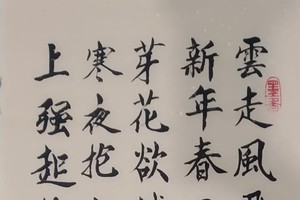 雲走風
新年春
芽花欲
寒夜抱
上强起